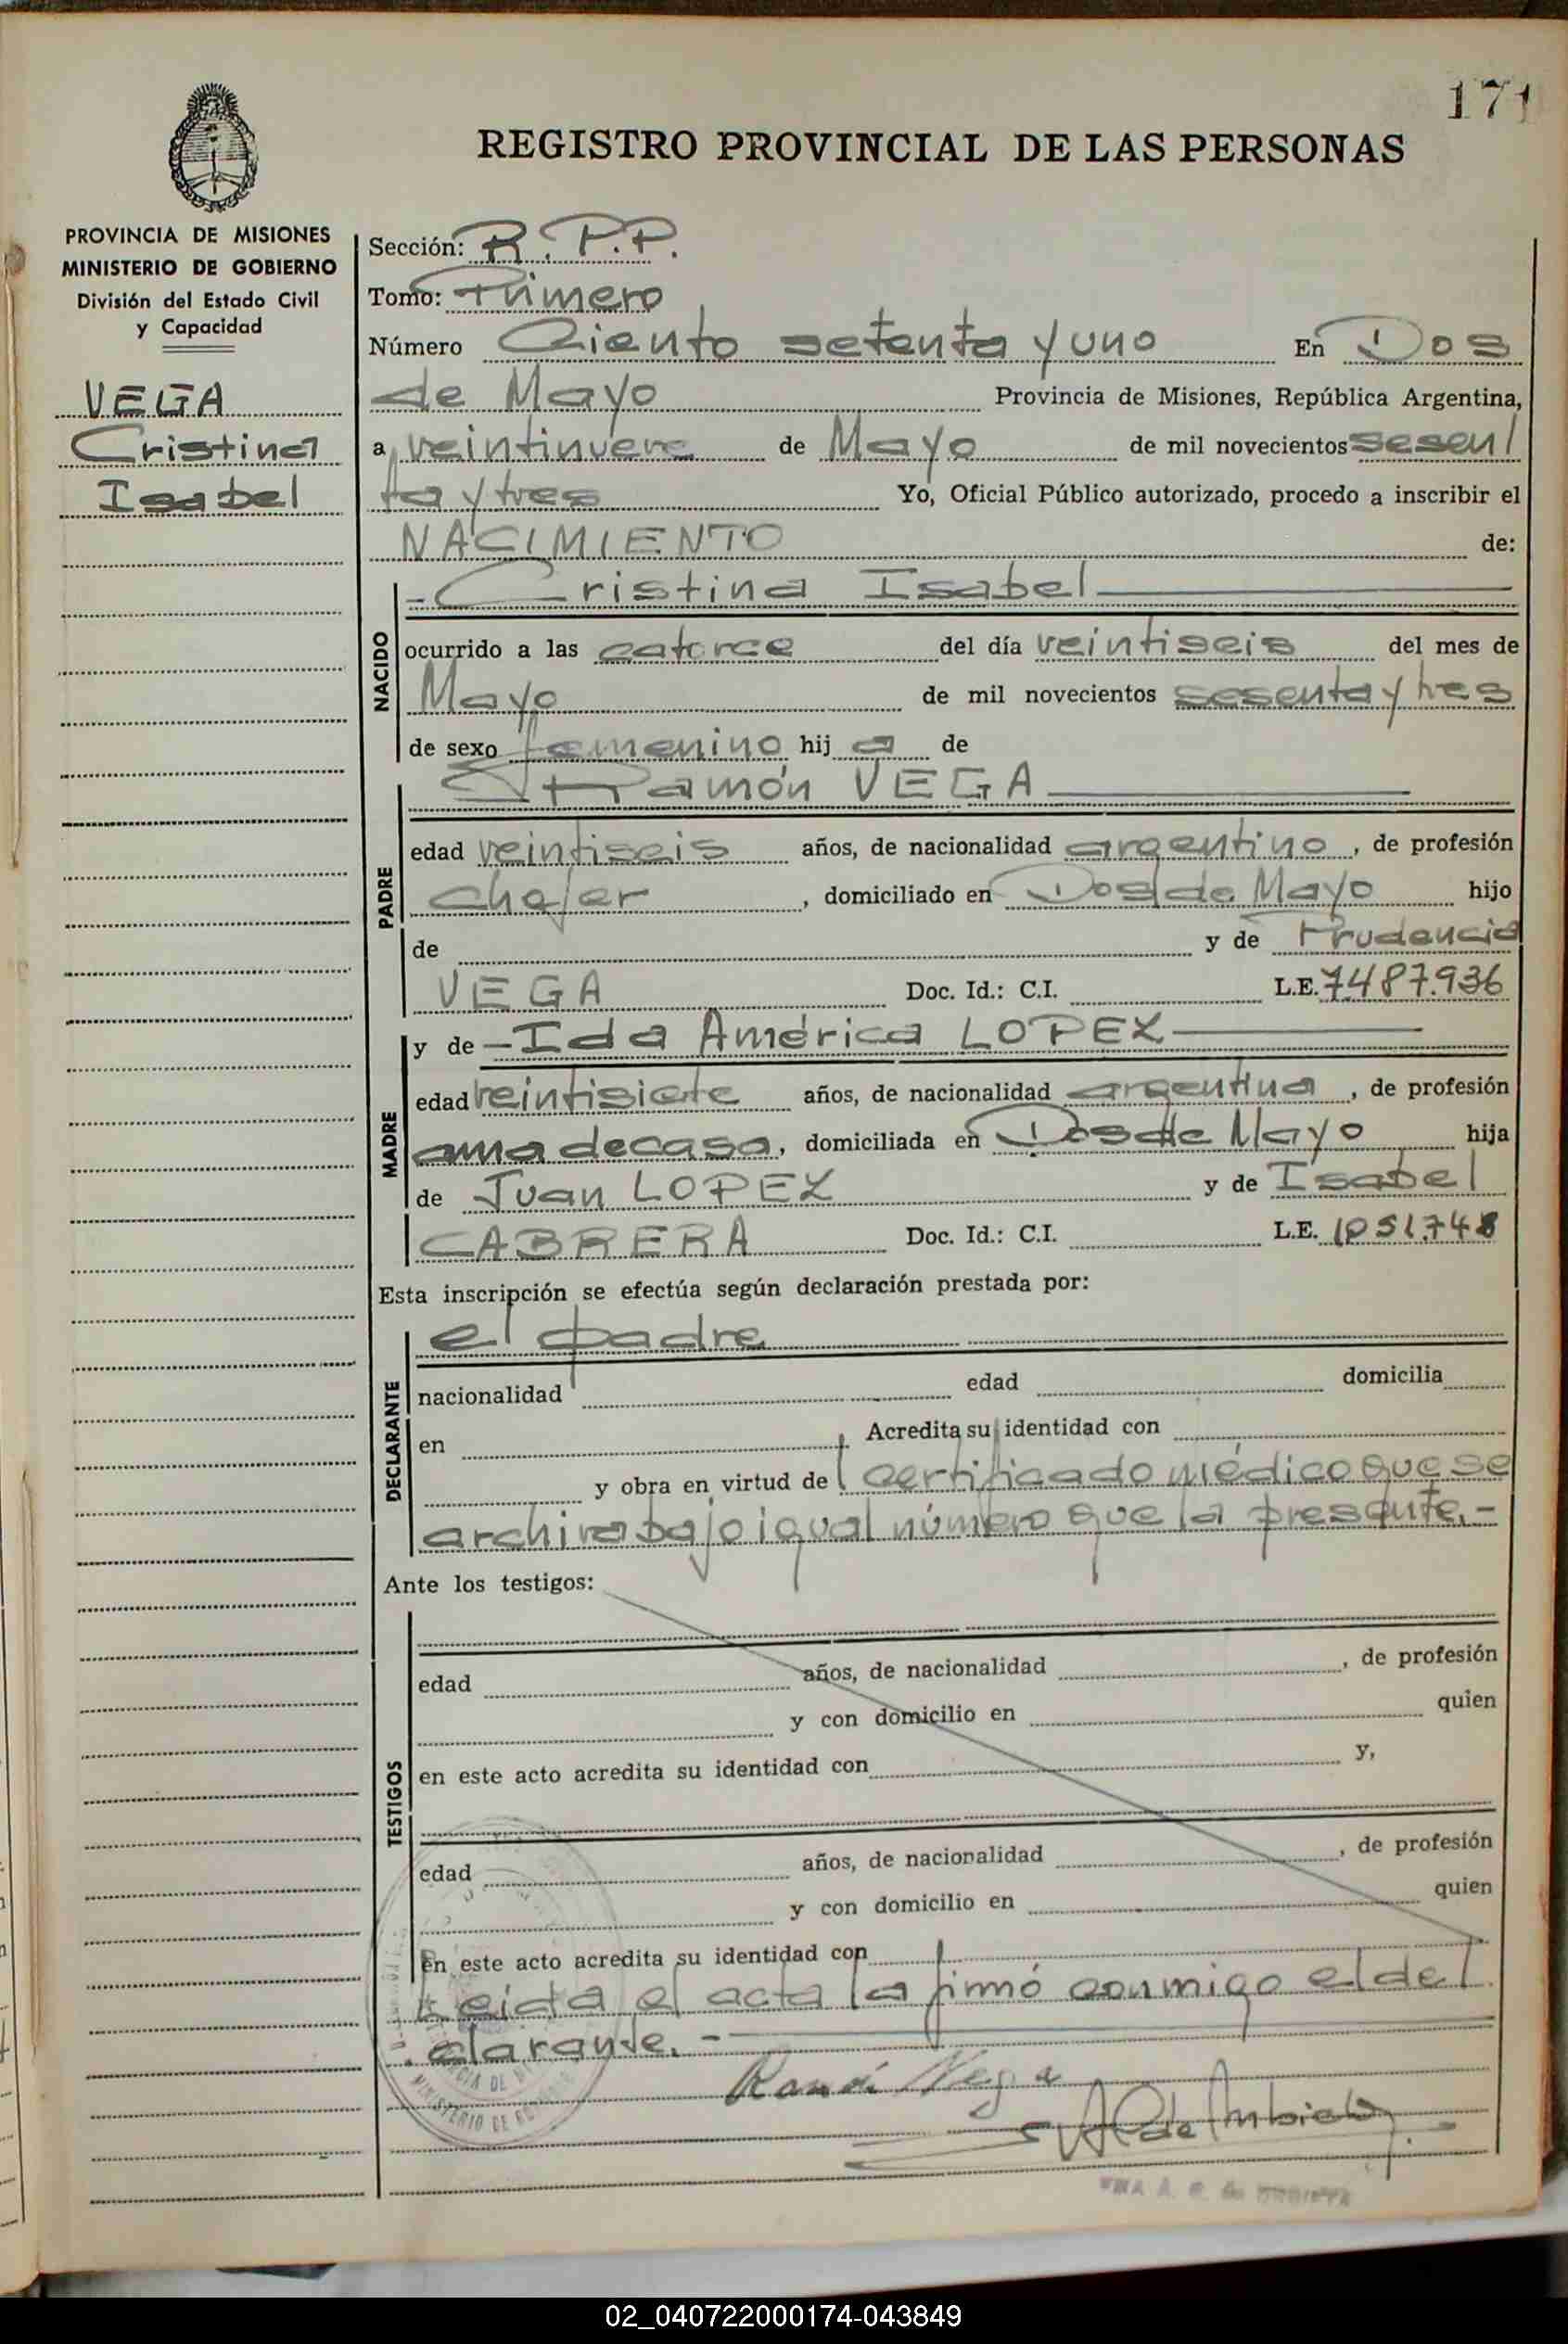 171
REGISTRO PROVINCIAL DE LAS PERSONAS
PROVINCIA DE MISIONES
MINISTERIO DE GOBIERNO
División del Estado Civil
y Capacidad
VEGA
Cristina
Isabel
Sección: R.P.P.
Tomo: Primero
Número Ciento setenta y uno En Dos
de Mayo Provincia de Misiones, República Argentina,
a veintinueve de Mayo de mil novecientos sesen/
ta y tres Yo, Oficial Público autorizado, procedo a inscribir el
NACIMIENTO de:
NACIDO
-Cristina Isabel
ocurrido a las catorce del día veintiseis del mes de
Mayo de mil novecientos sesenta y tres
de sexo femenino hij a de
PADRE
Ramón VEGA
edad veintiseis años, de nacionalidad argentino, de profesión
chofer, domiciliado en Dos de Mayo hijo
de y de Prudencia
VEGA Doc. Id.: C.I. L.E. 7487.936
MADRE
y de -Ida América LOPEZ
edad veintisiete años, de nacionalidad argentina, de profesión
ama de casa, domiciliada en Dos de Mayo hija
de Juan LOPEZ y de Isabel
CABRERA Doc. Id.: C.I. L.E. 1051.748
Esta inscripción se efectúa según declaración prestada por:
DECLARANTE
el padre
nacionalidad edad domicilia
en Acredita su identidad con
y obra en virtud de certificado médico que se
archiva bajo igual número que la presente.-
Ante los testigos:
TESTIGOS
edad años, de nacionalidad, de profesión
y con domicilio en quien
en este acto acredita su identidad con y,
edad años, de nacionalidad, de profesión
y con domicilio en quien
en este acto acredita su identidad con
Leida el acta la firmó conmigo el de/
clarante.-
Ramón Vega
MINISTERIO DE
02_040722000174-043849